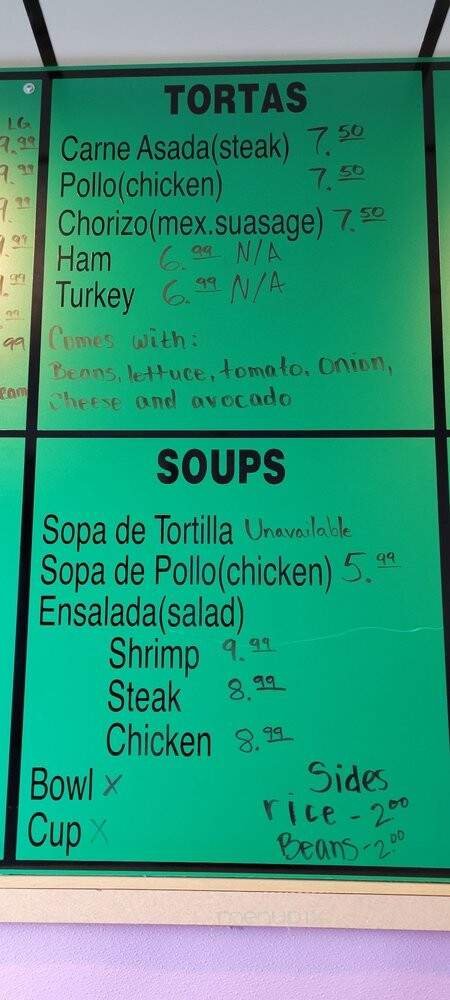 LG
9.99
9.99
9.99
9.99
.99
.99
99
eam
TORTAS
Carne Asada(steak) 7.50
Pollo(chicken) 7.50
Chorizo(mex.suasage) 7.50
Ham 6.99 N/A
Turkey 6.99 N/A
Comes with:
Beans, lettuce, tomato, onion,
Cheese and avocado
SOUPS
Sopa de Tortilla Unavailable
Sopa de Pollo(chicken) 5.99
Ensalada(salad)
Shrimp 9.99
Steak 8.99
Chicken 8.99
Bowl X
Cup X
Sides
rice - 2.00
Beans - 2.00